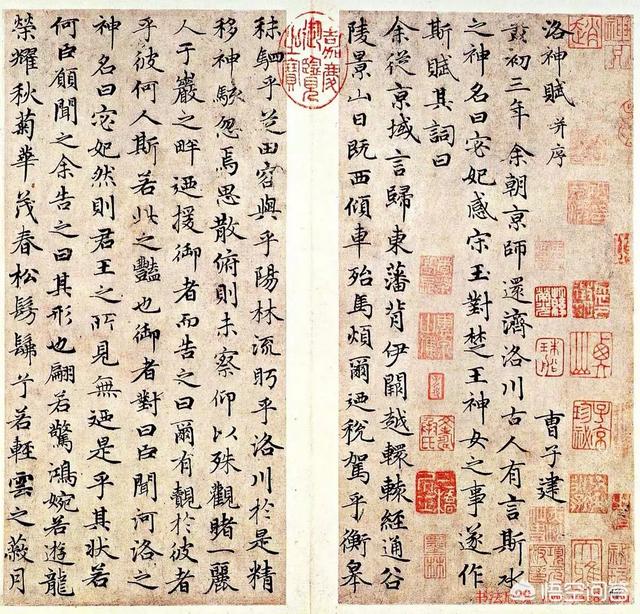 洛神賦 并序 曹子建
初三年余朝京師還濟洛川古人有言斯水
之神名曰宓妃感宋玉對楚王神女之事遂作
斯賦其詞曰
余從京域言歸東藩背伊闕越轘轅經通谷
陵景山日既西傾車殆馬煩爾迺稅駕乎衡皋
秣駟乎芝田容與乎陽林流眄乎洛川於是精
移神駭忽焉思散俯則未察仰以殊觀睹一麗
人于巖之畔迺援御者而告之曰爾有覿於彼者
乎彼何人斯若此之豔也御者對曰臣聞河洛之
神名曰宓妃然則君王之所見無迺是乎其狀若
何臣願聞之余告之曰其形也翩若驚鴻婉若遊龍
榮耀秋菊華茂春松髣髴兮若輕雲之蔽月
嘉慶御覽之寶
子京
悟空问答